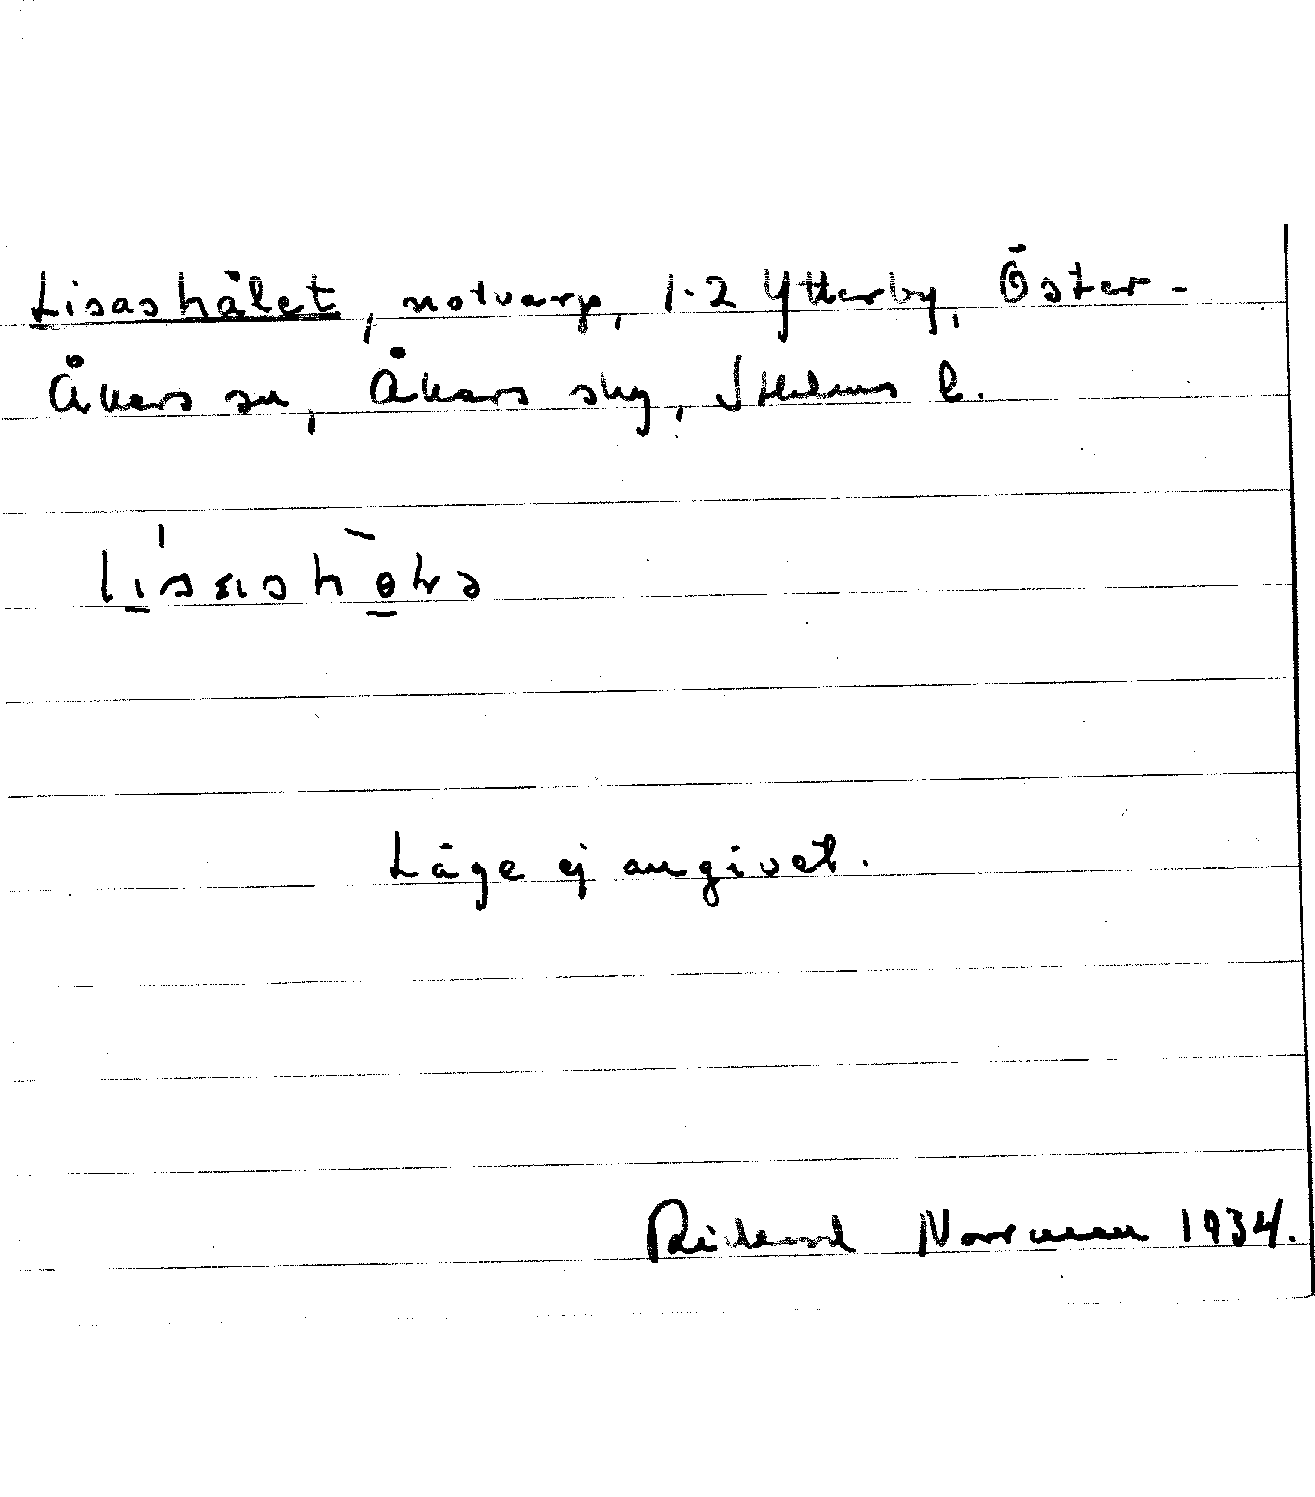 Lisashålet, notvarp, 1-2 Ytterby, Öster-
Åkers sn, Åkers skg, Sthlms l.
Läge ej angivet.
Rickard Norrman 1934.